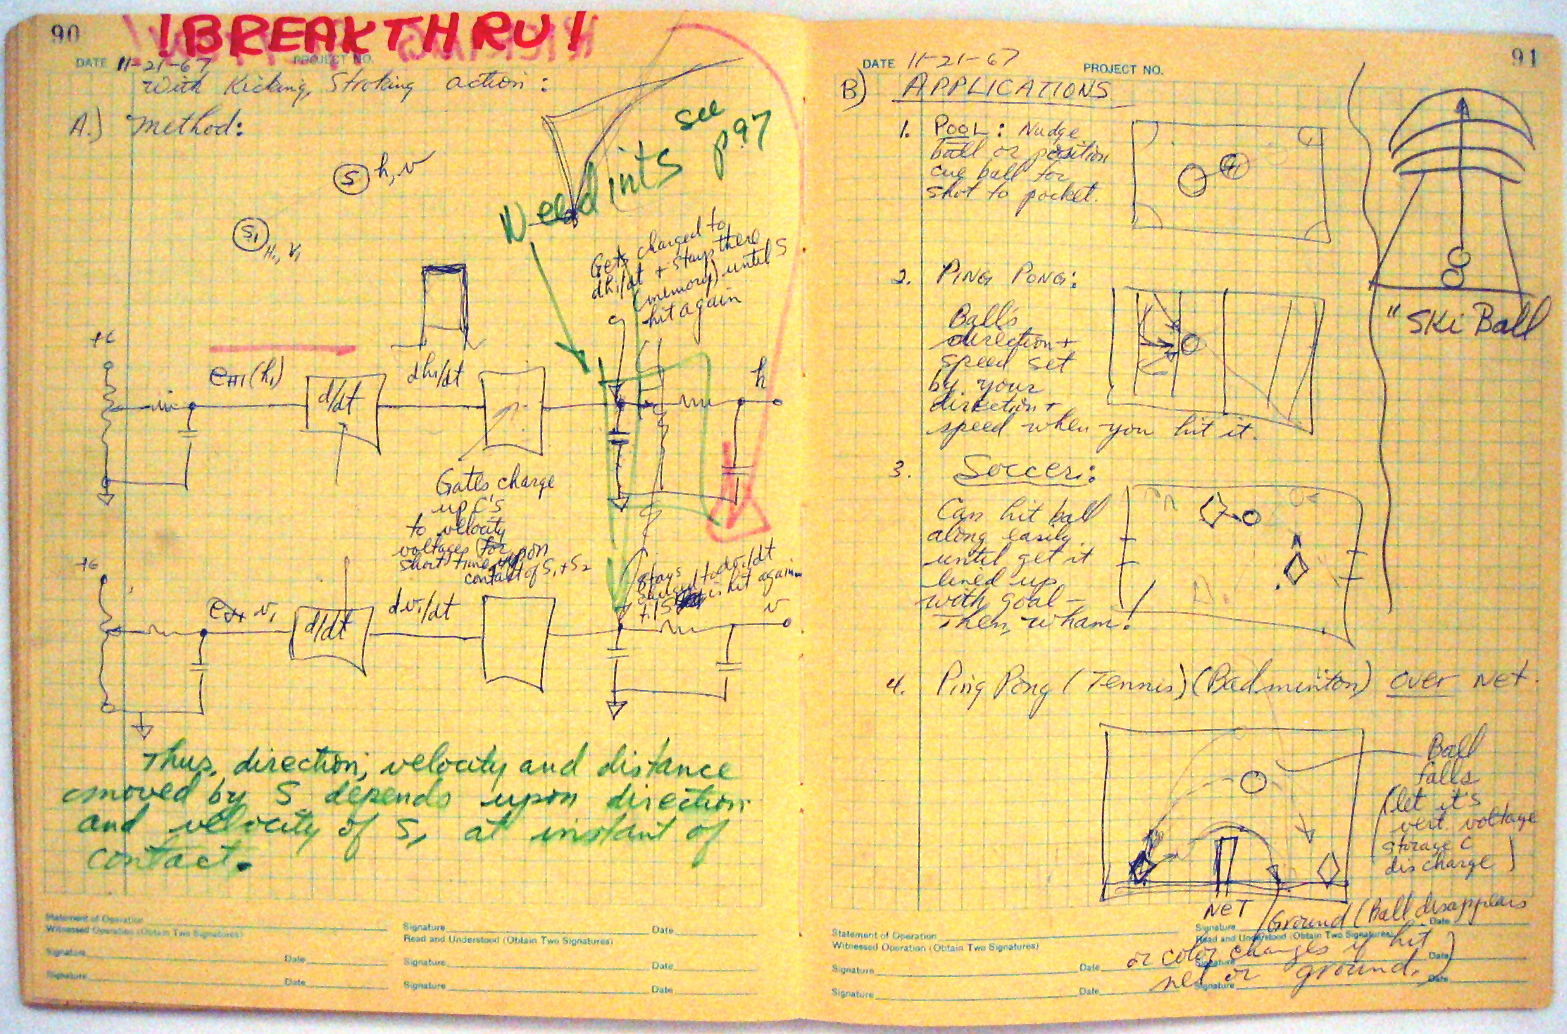 90
!BREAKTHRU!
DATE 11-21-67
PROJECT NO.
With Kicking, Stroking action:
A.) Method:
S h, v
S1 H1, V1
Need ints see
p 97
Gets charged to
dh1/dt + stays there
(memory) until S
hit again
+6
eH1(h1)
d/dt
dh1/dt
h
Gates charge
up C's
to velocity
voltages for
short time upon
contact of S1 + S2
+6
v1
d/dt
dv1/dt
stays
to dv1/dt
is hit again
v
Thus, direction, velocity and distance
moved by S depends upon direction
and velocity of S1 at instant of
contact.
Statement of Operation
Witnessed Operation (Obtain Two Signatures)
Signature Date
Signature Date
Signature Date
Read and Understood (Obtain Two Signatures)
Signature Date
Signature Date
91
DATE 11-21-67
PROJECT NO.
B) APPLICATIONS
1. POOL: Nudge
ball or position
cue ball for
shot to pocket.
"SKi Ball
2. PING PONG:
Ball's
direction +
speed set
by your
direction +
speed when you hit it.
3. Soccer:
Can hit ball
along easily
until get it
lined up
with goal –
Then, wham!
4. Ping Pong (Tennis) (Badminton) OVER NET.
Ball
falls
(let it's
vert. voltage
storage C
discharge)
NET
Ground (Ball disappears
or color changes if hit
net or ground.)
Statement of Operation
Witnessed Operation (Obtain Two Signatures)
Signature Date
Signature Date
Signature Date
Read and Understood (Obtain Two Signatures)
Signature Date
Signature Date